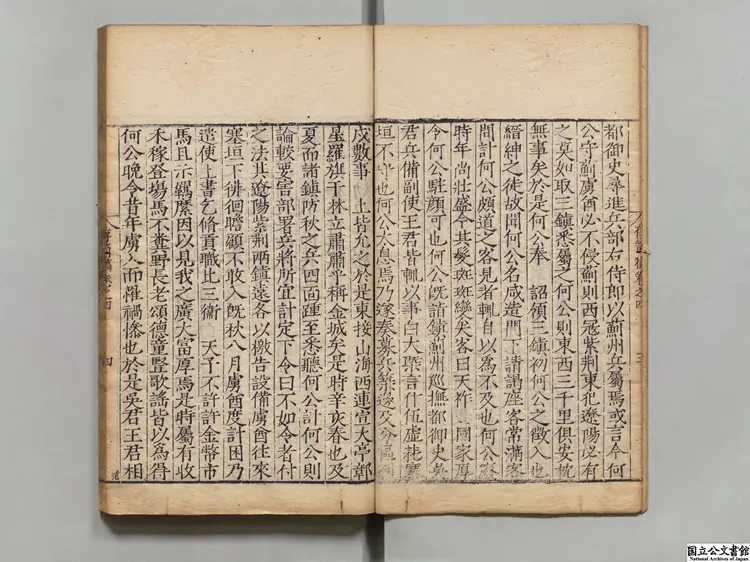 都御史尋進兵部右侍郎以薊州兵屬焉或言今何
公守薊虜酋必不侵薊則西冦紫荆東犯遼陽必有
之莫如取三鎮悉屬之何公則東西三千里俱安枕
無事矣於是何公奉 詔領三鎮初何公之徵入也
縉紳之徒故聞何公名咸造門下請謁座客常滿客
間計何公頗道之客見者輒自以為不及也何公
時年尚壯盛今其髮斑斑矣客曰天祚 國家厚
令何公駐顔可也何公旣詣鎮薊州巡撫都御史吳
君兵備副使王君皆輒以事白大槩言什伍虛耗塞
垣不守也何公太息焉乃條奏募兵築邊及分區列
戍數事 上皆允之於是東接山海西連宣大亭鄣
星羅旗干林立肅肅乎稱金城矣是時辛亥春也及
夏而諸鎮防秋之兵四面踵至悉聽何公計何公則
論較要害部署兵將所宜計定下令曰不如令者付
之法其遼陽紫荆兩鎮遠各以檄告設備虜酋往來
塞垣下徘徊瞻顧不敢入旣秋八月虜酋度計困乃
遣使上書乞脩貢職比三衛 天子不許許金幣市
馬且示羈縻因以見我之廣大富厚焉是時屬有收
禾稼登塲馬不野長老頌德童豎歌謠皆以為得
何公晚今昔年虜入而罹禍慘也於是吳君王君相
四
国立公文書館
National Archives of Japan